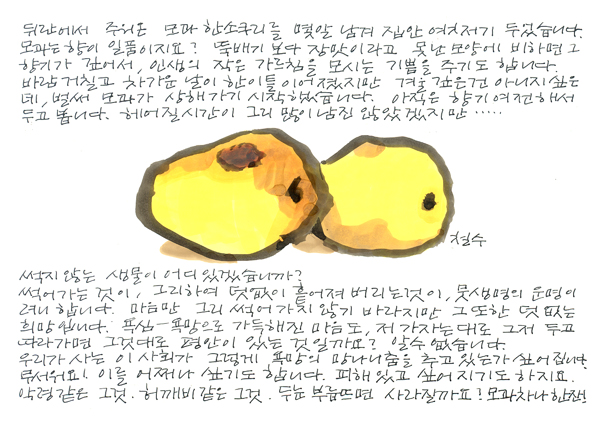 뒤란에서 주워온 모과 한소쿠리를 몇알 남겨 집안 여저기 두었습니다.
모과는 향이 일품이지요? 뚝배기 보다 장맛이라고 못난 모양에 비하면 그
향기가 깊어서, 인생의 작은 가르침을 모시는 기쁨을 주기도 합니다.
바람 거칠고 차가운 날이 한이틀 이어졌지만 겨울 깊은건 아니지 싶은
데, 벌써 모과가 상해가기 시작했습니다. 아직은 향기 여전해서
두고 봅니다. 헤어질 시간이 그리 많이 남진 않았겠지만 ·····
철수
썩지 않는 생물이 어디 있겠습니까?
썩어가는 것이, 그리하여 덧없이 흩어져 버리는 것이, 뭇생명의 운명이
려니 합니다. 마음만 그리 썩어 가지 않기 바라지만 그 또한 덧 없는
희망입니다. 욕심-욕망으로 가득해진 마음도, 저 가자는대로 그저 두고
따라가면 그것대로 편안이 있는 것일까요? 알수 없습니다.
우리가 사는 이 사회가 그렇게 욕망의 망나니춤을 추고 있는가 싶어집니다.
무서워요! 이를 어쩌나 싶기도 합니다. 피해 있고 싶어 지기도 하지요.
악령같은 그것. 허깨비같은 그것. 두눈 부릅뜨면 사라질까요? 모과차나 한잔!